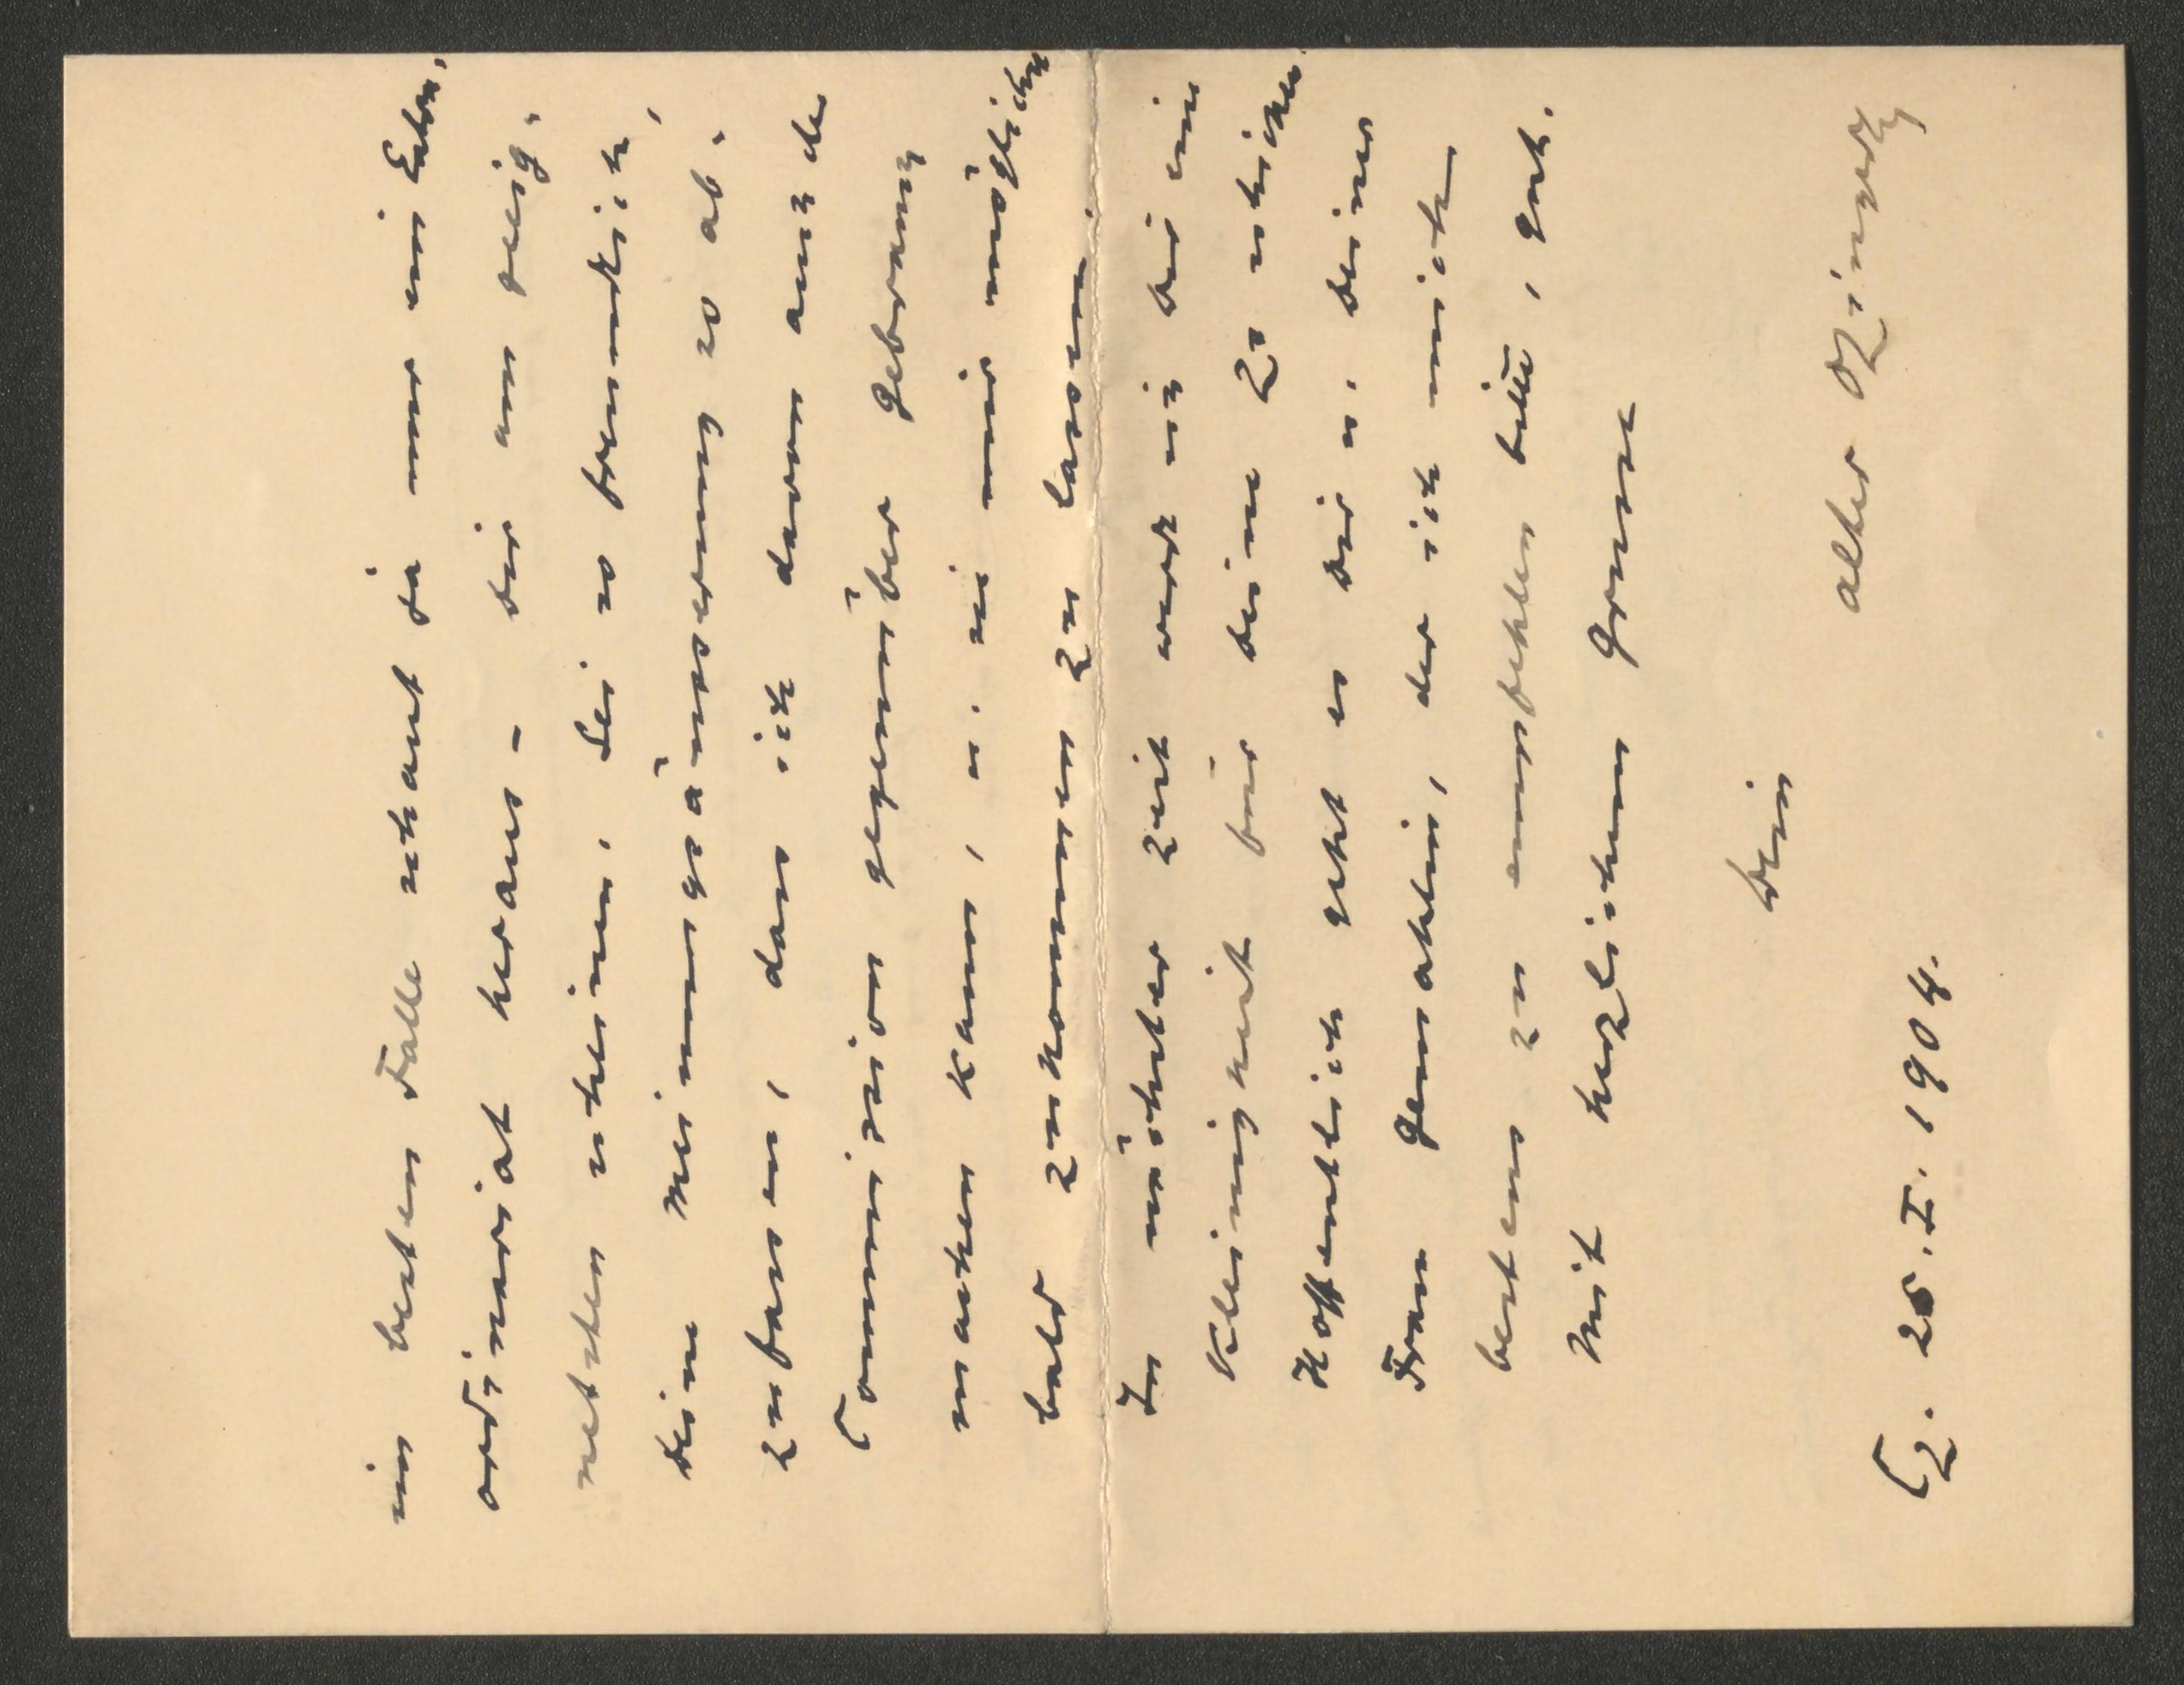 im besten Falle schaut ja nur ein Extra-
ordinariat heraus – dir am geeig-
netsten scheinen. Sei so freundlich,
deine Meinungsäusserung so ab-
zufassen, dass ich davon auch der
Commission gegenüber Gebrauch
machen kann, u. sie mir möglichst
bald zukommen zu lassen.
In nächster Zeit werde ich dir eine
Kleinigkeit für deine Zs schicken.
Hoffentlich geht es dir u. deiner
Frau Gemahlin, der ich mich
bestens zu empfehlen bitte, gut.
Mit herzlichem Grusse
dein
alter
Cz. 25. I. 1904.